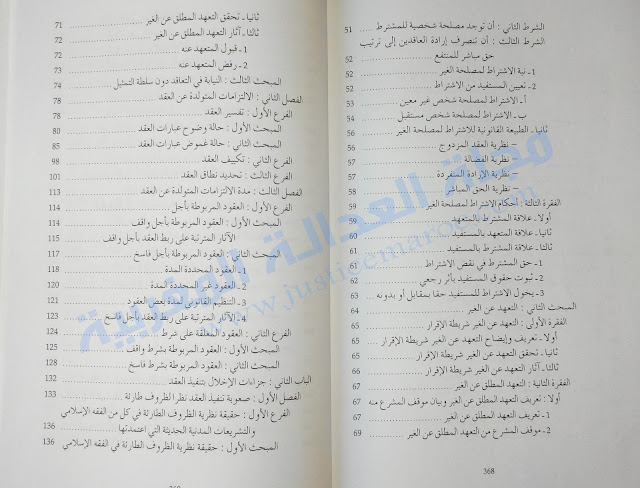 الشرط الثاني : أن توجد مصلحة شخصية للمشترط 51
الشرط الثالث : أن تنصرف إرادة العاقدين إلى ترتيب
حق مباشر للمنتفع 52
1ـ نية الاشتراط لمصلحة الغير 52
2ـ تعيين المستفيد من الاشتراط 52
أـ الاشتراط لمصلحة شخص غير معين 53
بـ الاشتراط لمصلحة شخص مستقبل 54
ثانياـ الطبيعة القانونية للاشتراط لمصلحة الغير 56
– نظرية العقد المزدوج 56
– نظرية الفضالة 57
– نظرية الإرادة المنفردة 57
– نظرية الحق المباشر 58
الفقرة الثالثة : أحكام الاشتراط لمصلحة الغير 59
أولاـ علاقة المشترط بالمتعهد 59
ثانياـ علاقة المتعهد بالمستفيد 60
ثالثاـ علاقة المشترط بالمستفيد 61
1ـ حق المشترط في نقض الاشتراط 61
2ـ ثبوت حقوق المستفيد بأثر رجعي 62
3ـ يخول الاشتراط للمستفيد حقا بمقابل أو بدونه 63
المبحث الثاني : التعهد عن الغير 64
الفقرة الأولى : التعهد عن الغير شريطة الإقرار 65
أولاـ تعريف وإيضاح التعهد عن الغير شريطة الإقرار 65
ثانياـ تحقق التعهد عن الغير شريطة الإقرار 66
ثالثاـ آثار التعهد عن الغير شريطة الإقرار 66
الفقرة الثانية : التعهد المطلق عن الغير 67
أولا : تعريف التعهد المطلق عن الغير وبيان موقف المشرع منه 67
1ـ تعريف التعهد المطلق عن الغير 67
2ـ موقف المشرع من التعهد المطلق عن الغير 69
368
ثانياـ تحقق التعهد المطلق عن الغير 71
ثالثاـ آثار التعهد المطلق عن الغير 71
1ـ قبول المتعهد عنه 72
2ـ رفض المتعهد عنه 73
المبحث الثالث : النيابة في التعاقد دون سلطة التمثيل 74
الفصل الثاني : الالتزامات المتولدة عن العقد 78
الفرع الأول : تفسير العقد 78
المبحث الأول : حالة وضوح عبارات العقد 80
المبحث الثاني : حالة غموض عبارات العقد 85
الفرع الثاني : تكييف العقد 98
الفرع الثالث : تحديد نطاق العقد 101
الفصل الثالث : مدة الالتزامات المتولدة عن العقد 113
الفرع الأول : العقود المربوطة بأجل 114
المبحث الأول : العقود المربوطة بأجل واقف 114
الآثار المترتبة على ربط العقد بأجل واقف 115
المبحث الثاني : العقود المربوطة بأجل فاسخ 117
1ـ العقود المحددة المدة 118
2ـ العقود غير المحددة المدة 120
3ـ التنظيم القانوني لمدة بعض العقود 121
4ـ الآثار المترتبة على ربط العقد بأجل فاسخ 123
الفرع الثاني : العقود المعلقة على شرط 124
المبحث الأول : العقود المربوطة بشرط واقف 125
المبحث الثاني : العقود المربوطة بشرط فاسخ 128
الباب الثاني : جزاءات الإخلال بتنفيذ العقد 132
الفصل الأول : صعوبة تنفيذ العقد نظرا لظروف طارئة 133
الفرع الأول : حقيقة نظرية الظروف الطارئة في كل من الفقه الإسلامي
والتشريعات المدنية الحديثة التي اعتمدتها 136
المبحث الأول : حقيقة نظرية الظروف الطارئة في الفقه الإسلامي 136
مجلة العدالة المغربية